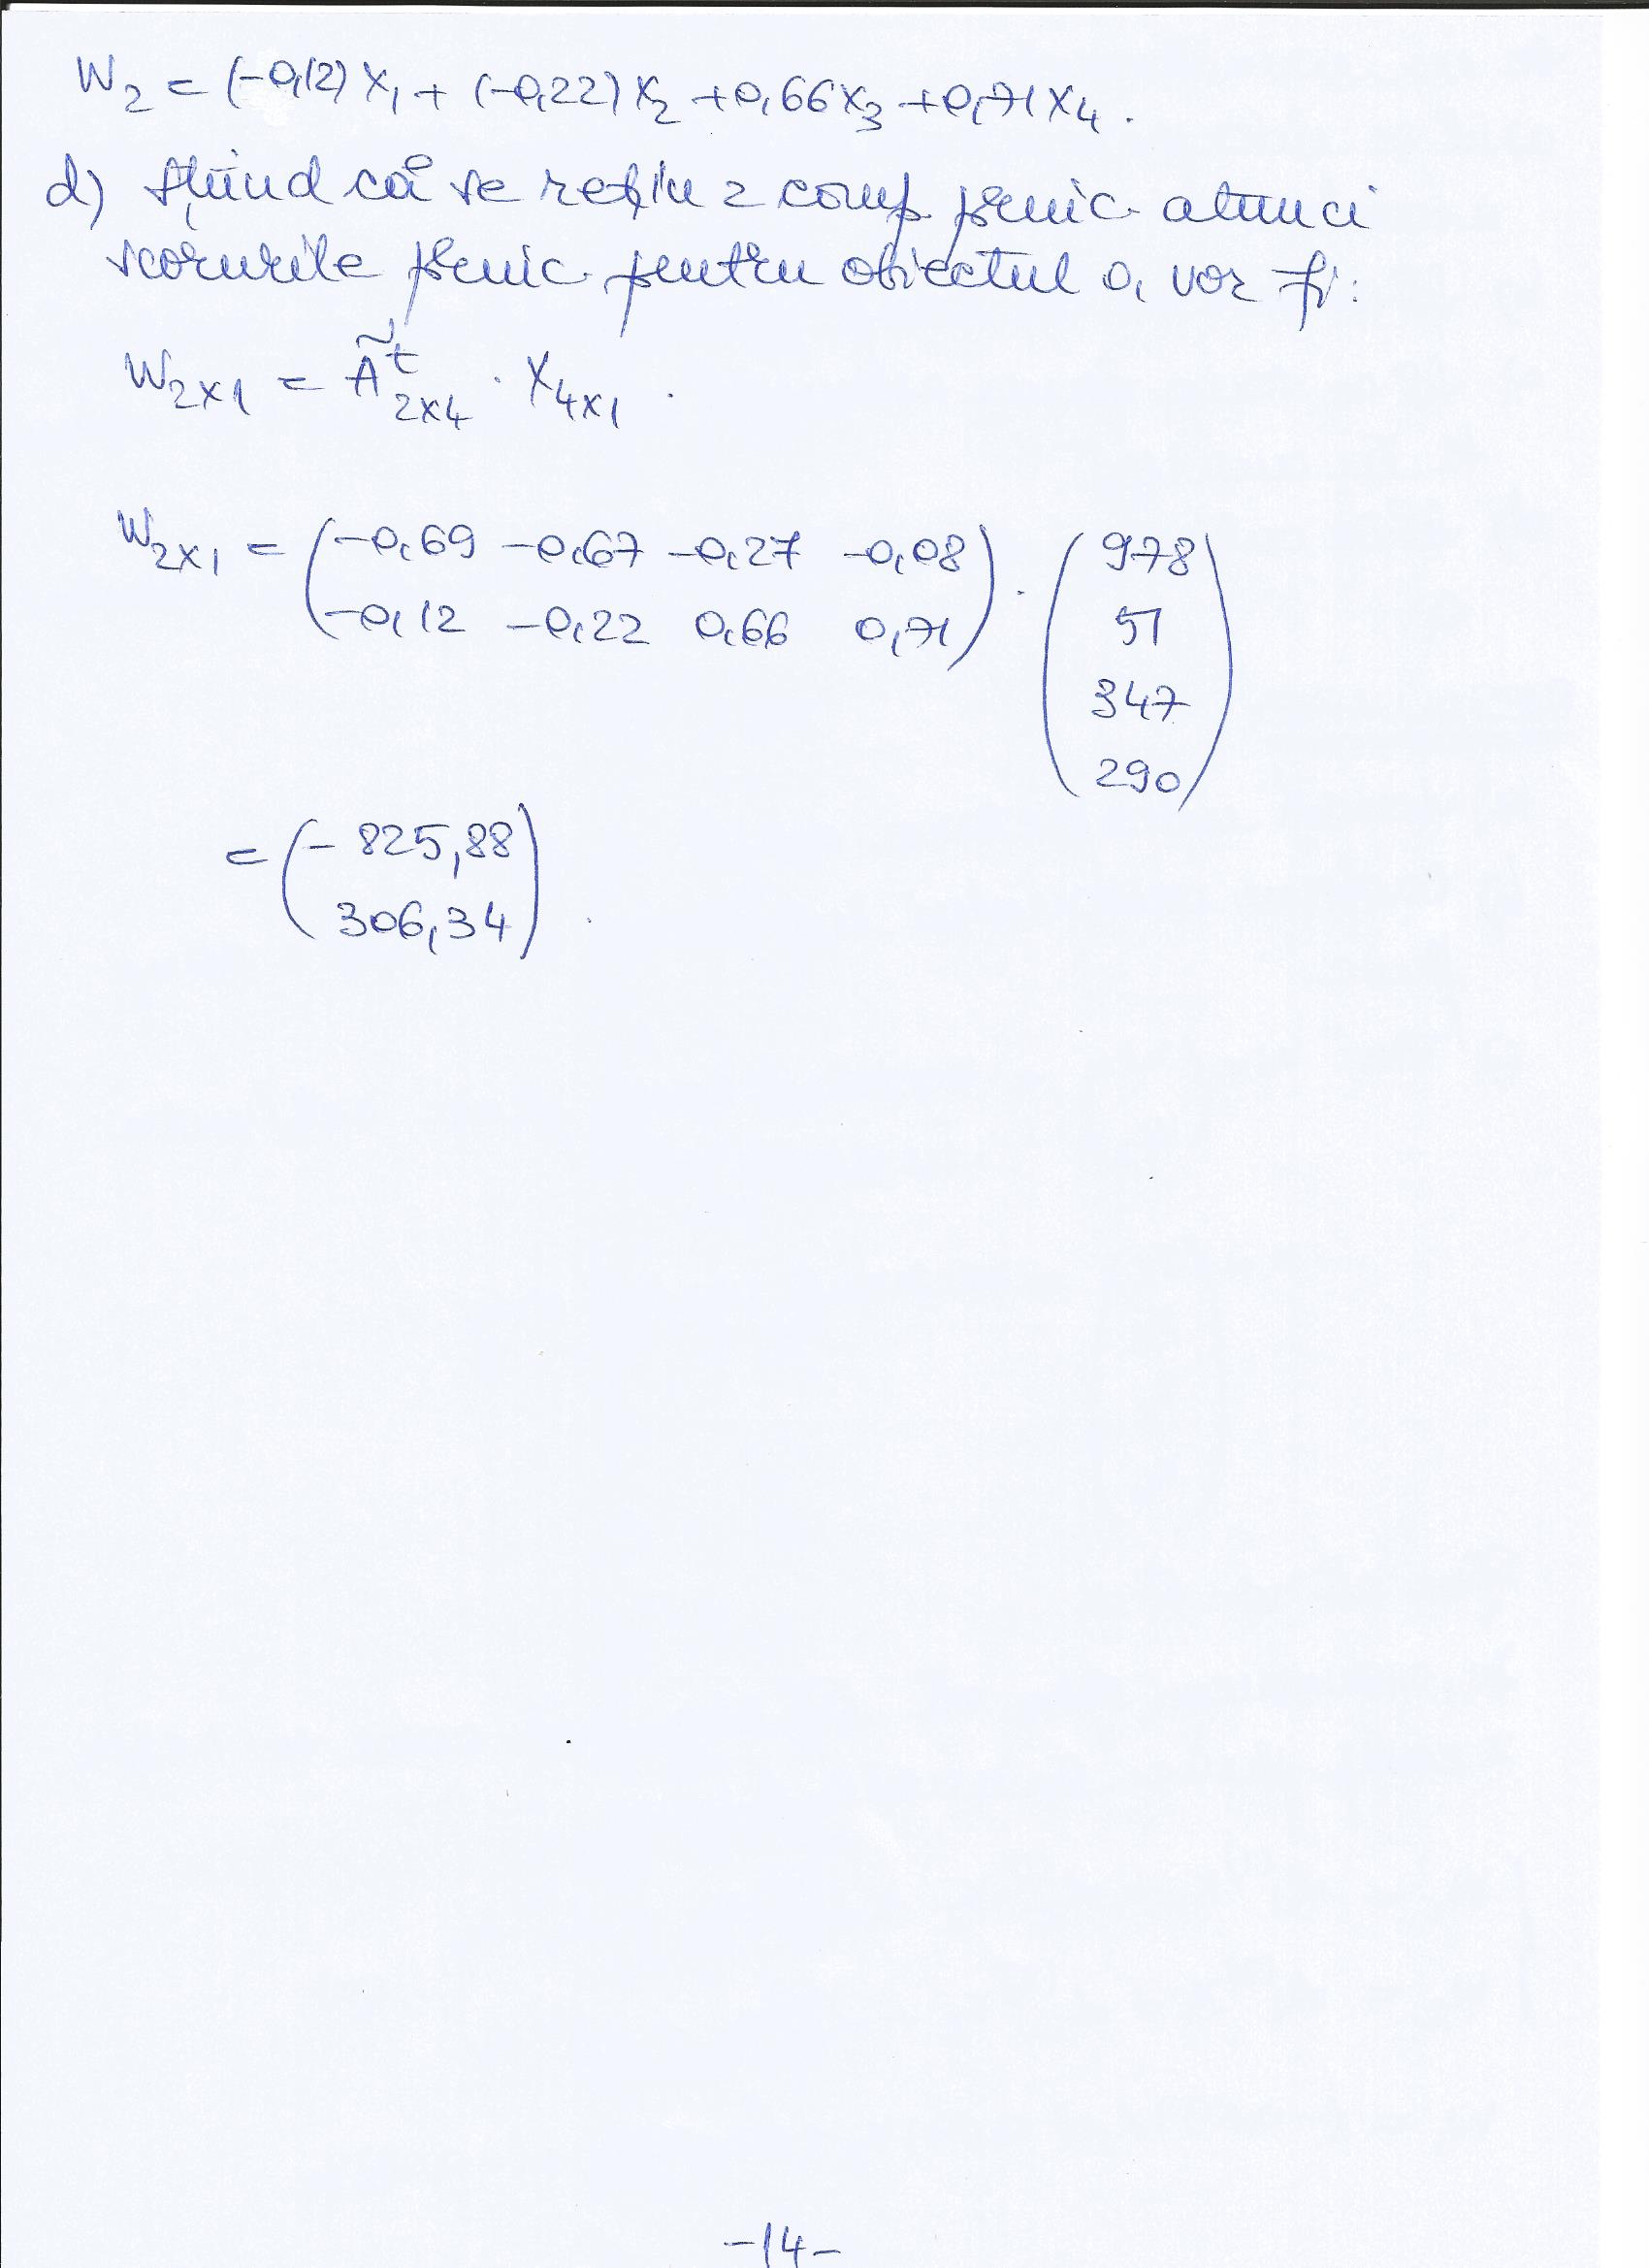 W₂ = (-0,12)X₁ + (-0,22)X₂ + 0,66X₃ + 0,71X₄.
d) știind că se rețin 2 comp princ. atunci
scorurile princ. pentru obiectul o₁ vor fi:
W₂ₓ₁ = Ã^t₂ₓ₄ · X₄ₓ₁.
W₂ₓ₁ = (-0,69 -0,67 -0,27 -0,08) · (978
-0,12 -0,22 0,66 0,71 51
347
290)
= (-825,88
306,34).
-14-